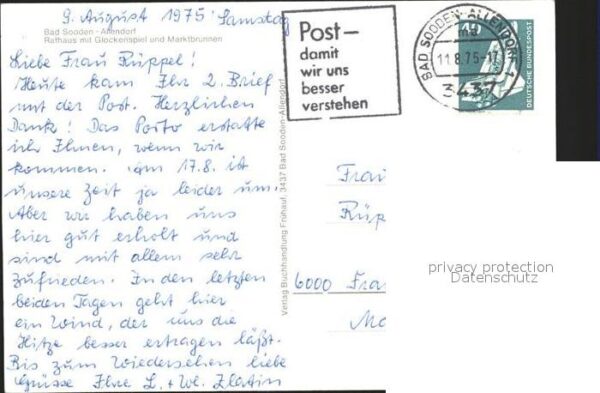 9. August 1975 Samstag
Bad Sooden-Allendorf
Rathaus mit Glockenspiel und Marktbrunnen
Liebe Frau Rüppel!
Heute kam Ihr 2. Brief
mit der Post. Herzlichen
Dank! Das Porto erstatte
ich Ihnen, wenn wir
kommen. Am 17.8. ist
unsere Zeit ja leider um.
Aber wir haben uns
hier gut erholt und
sind mit allem sehr
zufrieden. In den letzten
beiden Tagen geht hier
ein Wind, der uns die
Hitze besser ertragen läßt.
Bis zum Wiedersehen liebe
Grüsse Ihre L. + W. Zlatin
Verlag Buchhandlung Frühauf, 3437 Bad Sooden-Allendorf
Post –
damit
wir uns
besser
verstehen
BAD SOODEN-ALLENDORF 1
ma
11.8.75-17
3437
40
DEUTSCHE BUNDESPOST
Frau
Rüp
6000 Fra
privacy protection
Datenschutz